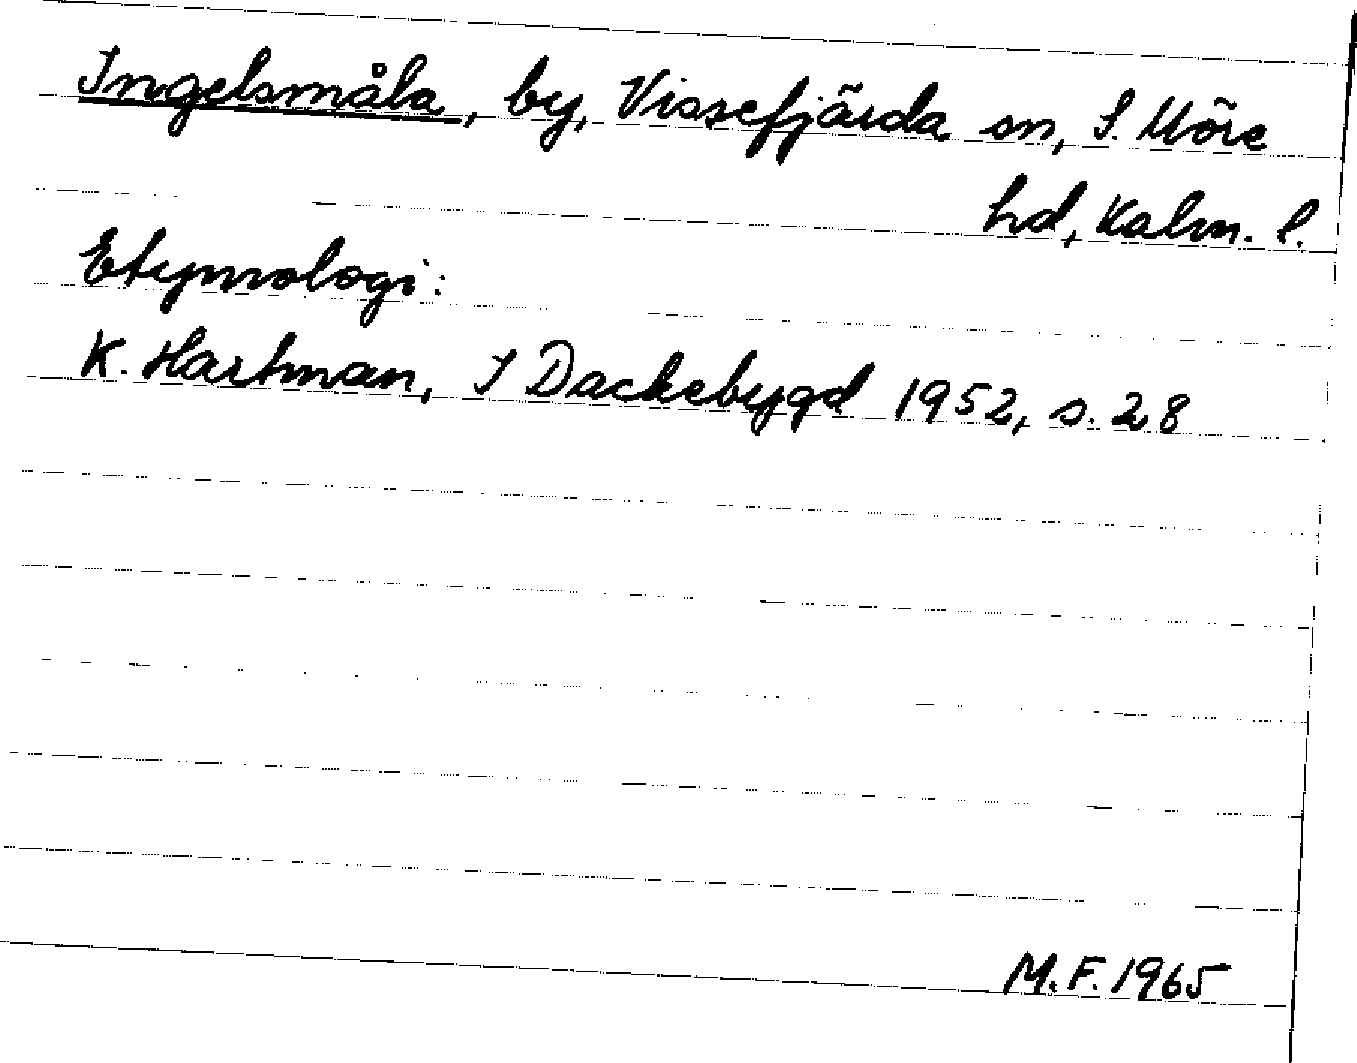 Ingelsmåla, by, Vissefjärda sn, S. Möre
hd, Kalm. l.
Etymologi:
K. Hartman, I Dackebygd 1952, s. 28
M.F. 1965